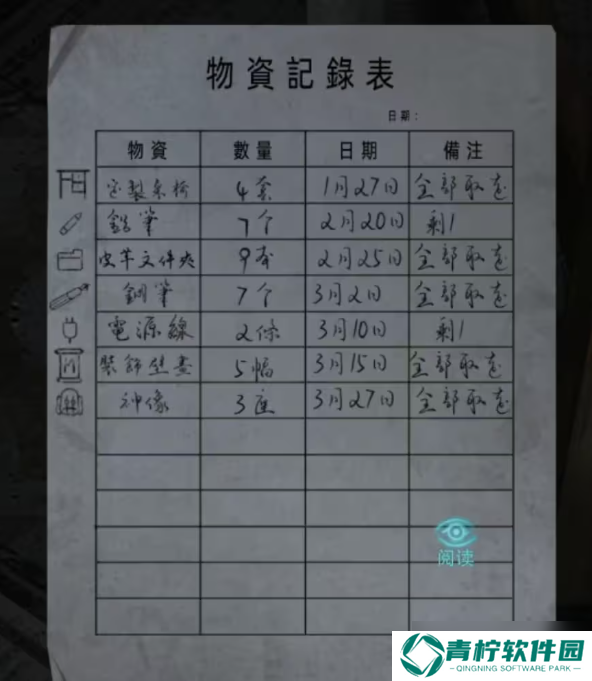 物資記錄表
日期：
物資 數量 日期 備注
定製桌椅 4套 1月27日 全部取走
鉛筆 7个 2月20日 剩1
皮革文件夾 9本 2月25日 全部取走
鋼筆 7个 3月2日 全部取走
電源線 2條 3月10日 剩1
裝飾壁畫 5幅 3月15日 全部取走
神像 3座 3月27日 全部取走
阅读
青柠软件园
QINGNING SOFTWARE PARK